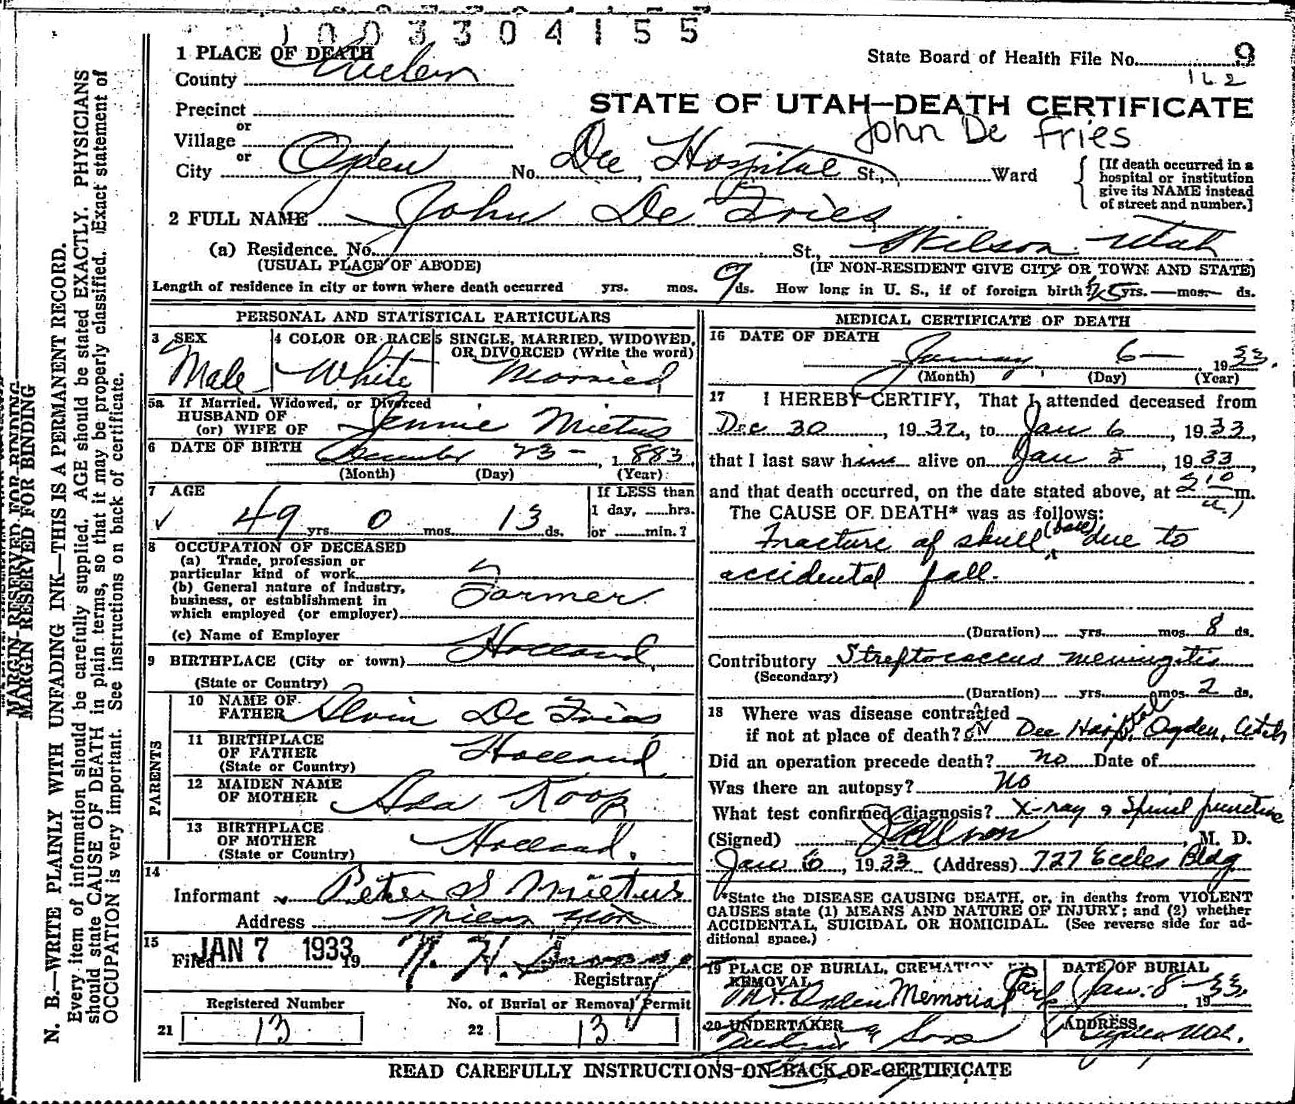 1003304155
1 PLACE OF DEATH
State Board of Health File No. 9
County
162
STATE OF UTAH—DEATH CERTIFICATE
Precinct
John De Fries
or
Village
or
City Ogden No. Dee Hospital St., Ward
[If death occurred in a
hospital or institution
give its NAME instead
of street and number.]
2 FULL NAME John De Fries
(a) Residence. No. St., Wilson Utah
(USUAL PLACE OF ABODE) (IF NON-RESIDENT GIVE CITY OR TOWN AND STATE)
Length of residence in city or town where death occurred yrs. mos. 9 ds. How long in U. S., if of foreign birth? yrs. — mos. — ds.
PERSONAL AND STATISTICAL PARTICULARS
3 SEX 4 COLOR OR RACE 5 SINGLE, MARRIED, WIDOWED,
OR DIVORCED (Write the word)
Male White Married
5a If Married, Widowed, or Divorced
HUSBAND OF
(or) WIFE OF Jennie Mietus
6 DATE OF BIRTH December 23 – 1883
(Month) (Day) (Year)
7 AGE If LESS than
1 day, ......hrs.
✓ 49 yrs. 0 mos. 13 ds. or ......min.?
8 OCCUPATION OF DECEASED
(a) Trade, profession or
particular kind of work
(b) General nature of industry,
business, or establishment in
which employed (or employer) Farmer
(c) Name of Employer
9 BIRTHPLACE (City or town) Holland
(State or Country)
PARENTS
10 NAME OF
FATHER De Fries
11 BIRTHPLACE
OF FATHER Holland
(State or Country)
12 MAIDEN NAME
OF MOTHER Ada Koop
13 BIRTHPLACE
OF MOTHER Holland.
(State or Country)
14
Informant Peter S Mietus
Address
15
Filed JAN 7 1933 19
Registrar
Registered Number No. of Burial or Removal Permit
21 13 22 13
MEDICAL CERTIFICATE OF DEATH
16 DATE OF DEATH
January 6 — 1933.
(Month) (Day) (Year)
17 I HEREBY CERTIFY, That I attended deceased from
Dec 30, 1932, to Jan 6, 1933,
that I last saw him alive on Jan 5, 1933,
and that death occurred, on the date stated above, at 210 m.
The CAUSE OF DEATH* was as follows:
Fracture of skull (base) due to
accidental fall.
(Duration) yrs. mos. 8 ds.
Contributory Streptococcus meningitis
(Secondary)
(Duration) yrs. mos. 2 ds.
18 Where was disease contracted
if not at place of death? Dee Hospital, Ogden, Utah
Did an operation precede death? no Date of
Was there an autopsy? No
What test confirmed diagnosis? X-ray & Spinal puncture
(Signed) M. D.
Jan 6, 1933 (Address) 727 Eccles Bldg
*State the DISEASE CAUSING DEATH, or, in deaths from VIOLENT
CAUSES state (1) MEANS AND NATURE OF INJURY; and (2) whether
ACCIDENTAL, SUICIDAL OR HOMICIDAL. (See reverse side for ad-
ditional space.)
19 PLACE OF BURIAL, CREMATION
REMOVAL DATE OF BURIAL
Mt. Ogden Memorial Park Jan. 8–33
19
20 UNDERTAKER ADDRESS
& Sons Ogden Utah.
READ CAREFULLY INSTRUCTIONS ON BACK OF CERTIFICATE
MARGIN RESERVED FOR BINDING
MARGIN RESERVED FOR BINDING
N. B.—WRITE PLAINLY WITH UNFADING INK—THIS IS A PERMANENT RECORD.
Every item of information should be carefully supplied. AGE should be stated EXACTLY. PHYSICIANS
should state CAUSE OF DEATH in plain terms, so that it may be properly classified. Exact statement of
OCCUPATION is very important. See instructions on back of certificate.